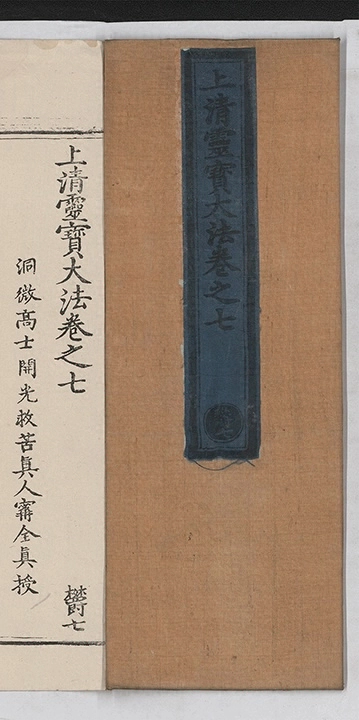 上清靈寶大法卷之七
上清靈寶大法卷之七
欝七
洞微高士開光救苦眞人寗全眞授